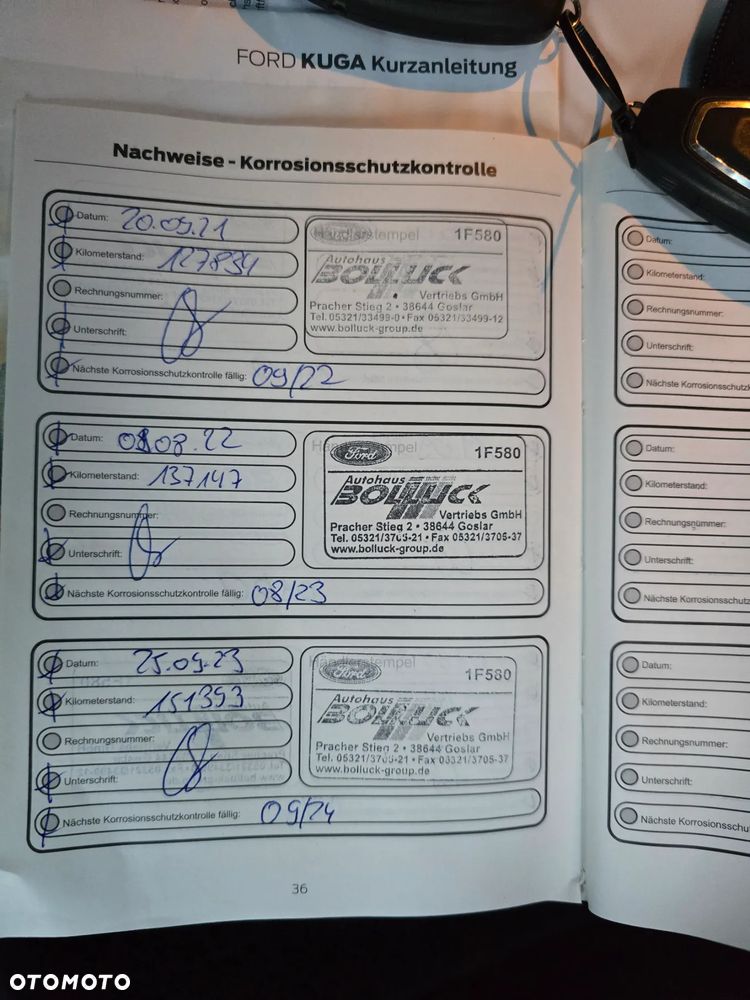 FORD KUGA Kurzanleitung
Nachweise - Korrosionsschutzkontrolle
Datum: 20.09.21
Kilometerstand: 127834
Rechnungsnummer:
Unterschrift:
Nächste Korrosionsschutzkontrolle fällig: 09/22
Händlerstempel
1F580
Autohaus
BOLLUCK
Vertriebs GmbH
Pracher Stieg 2 • 38644 Goslar
Tel. 05321/33499-0 • Fax 05321/33499-12
www.bolluck-group.de
Datum: 08.22
Kilometerstand: 137147
Rechnungsnummer:
Unterschrift:
Nächste Korrosionsschutzkontrolle fällig: 08/23
Händlerstempel
Ford
1F580
Autohaus
BOLLUCK
Vertriebs GmbH
Pracher Stieg 2 • 38644 Goslar
Tel. 05321/3705-21 • Fax 05321/3705-37
www.bolluck-group.de
Datum: 25.09.23
Kilometerstand: 151393
Rechnungsnummer:
Unterschrift:
Nächste Korrosionsschutzkontrolle fällig: 09/24
Händlerstempel
Ford
1F580
Autohaus
BOLLUCK
Vertriebs GmbH
Pracher Stieg 2 • 38644 Goslar
Tel. 05321/3705-21 • Fax 05321/3705-37
www.bolluck-group.de
36
Datum:
Kilometerstand:
Rechnungsnummer:
Unterschrift:
Nächste Korrosionsschutzk
Datum:
Kilometerstand:
Rechnungsnummer:
Unterschrift:
Nächste Korrosionsschutz
Datum:
Kilometerstand:
Rechnungsnummer:
Unterschrift:
Nächste Korrosionsschu
OTOMOTO